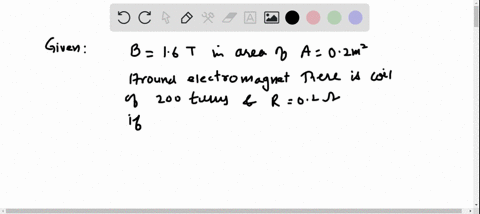 Given: B = 1.6 T in area of A = 0.2m²
Around electromagnet There is coil
of 200 turns & R = 0.2 Ω
if